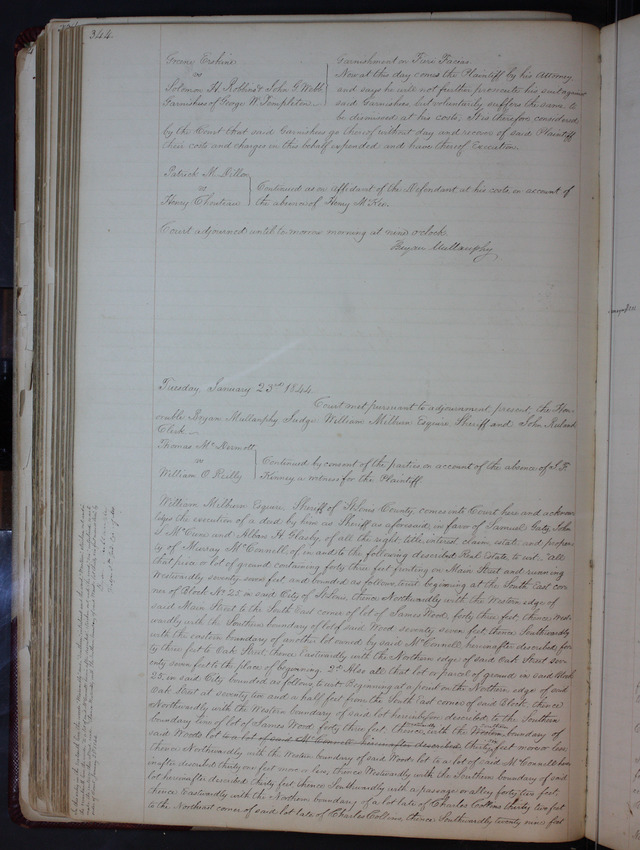 344
Greene Erskine
vs
Solomon H. Robbins & John G. Webb
Garnishees of George W. Templeton
Garnishment on Fiere Facias
Now at this day comes the Plaintiff by his Attorney
and says he will not further prosecute his suit against
said Garnishee but voluntarily suffers the same to
be dismissed at his costs. It is therefore considered
by the Court that said Garnishees go thereof without day and recover of said Plaintiff
their costs and charges in this behalf expended and have thereof Execution.
Patrick M. Dillon
vs
Henry Chouteau
Continued as on affidavit of the Defendant at his costs on account of
the absence of Henry McKee.
Court adjourned until tomorrow morning at nine o'clock
Bryan Mullanphy
Tuesday, January 23rd 1844.
Court met pursuant to adjournment present, the Hon-
orable Bryan Mullanphy Judge William Milburn Esquire Sheriff and John Ruland
Clerk
Thomas McDermott
vs
William O. Reilly
Continued by consent of the parties on account of the absence of
Kenney a witness for the Plaintiff.
William Milburn Esquire, Sheriff of St Louis County, comes into Court here and acknow-
ledges the execution of a deed by him as Sheriff as aforesaid, in favor of Samuel Gaty, John
McCune and Alban H. Glasby, of all the right, title, interest, claim, estate and proper-
ty of Murray McConnell, of in and to the following described Real Estate, to wit "All
that piece or lot of ground containing forty three feet fronting on Main Street and running
Westwardly seventy seven feet and bounded as follows, to wit, beginning at the South East cor-
ner of Block No 25 in said City of St Louis, thence Northwardly with the Western edge of
said Main Street to the South East corner of lot of James Wood, forty three feet, thence West-
wardly with the Southern boundary of lot of said Wood seventy seven feet thence Southwardly
with the eastern boundary of another lot owned by said McConnell, hereinafter described, for-
ty three feet to Oak Street, thence Eastwardly with the Northern edge of said Oak Street sev-
enty seven feet to the place of beginning. 2d Also all that lot or parcel of ground in said Block
25, in said City bounded as follows, to wit: Beginning at a point on the Northern edge of said
Oak Street at seventy ten and a half feet from the South East corner of said Block, thence
Northwardly with the Western boundary of said lot hereinbefore described to the Southern
boundary line of lot of James Wood forty three feet, thence with the Western boundary of
said Woods lot to a lot of said McConnell hereinafter described thirty feet more or less,
thence Northwardly with the Western boundary of said Woods lot to a lot of said McConnell here-
inafter described thirty one feet more or less, thence Westwardly with the Southern boundary of said
lot hereinafter described thirty feet thence Southwardly with a passage or alley forty two feet,
thence Eastwardly with the Northern boundary of a lot late of Charles Collins thirty two feet
to the Northeast corner of said lot late of Charles Collins, thence Southwardly twenty nine feet